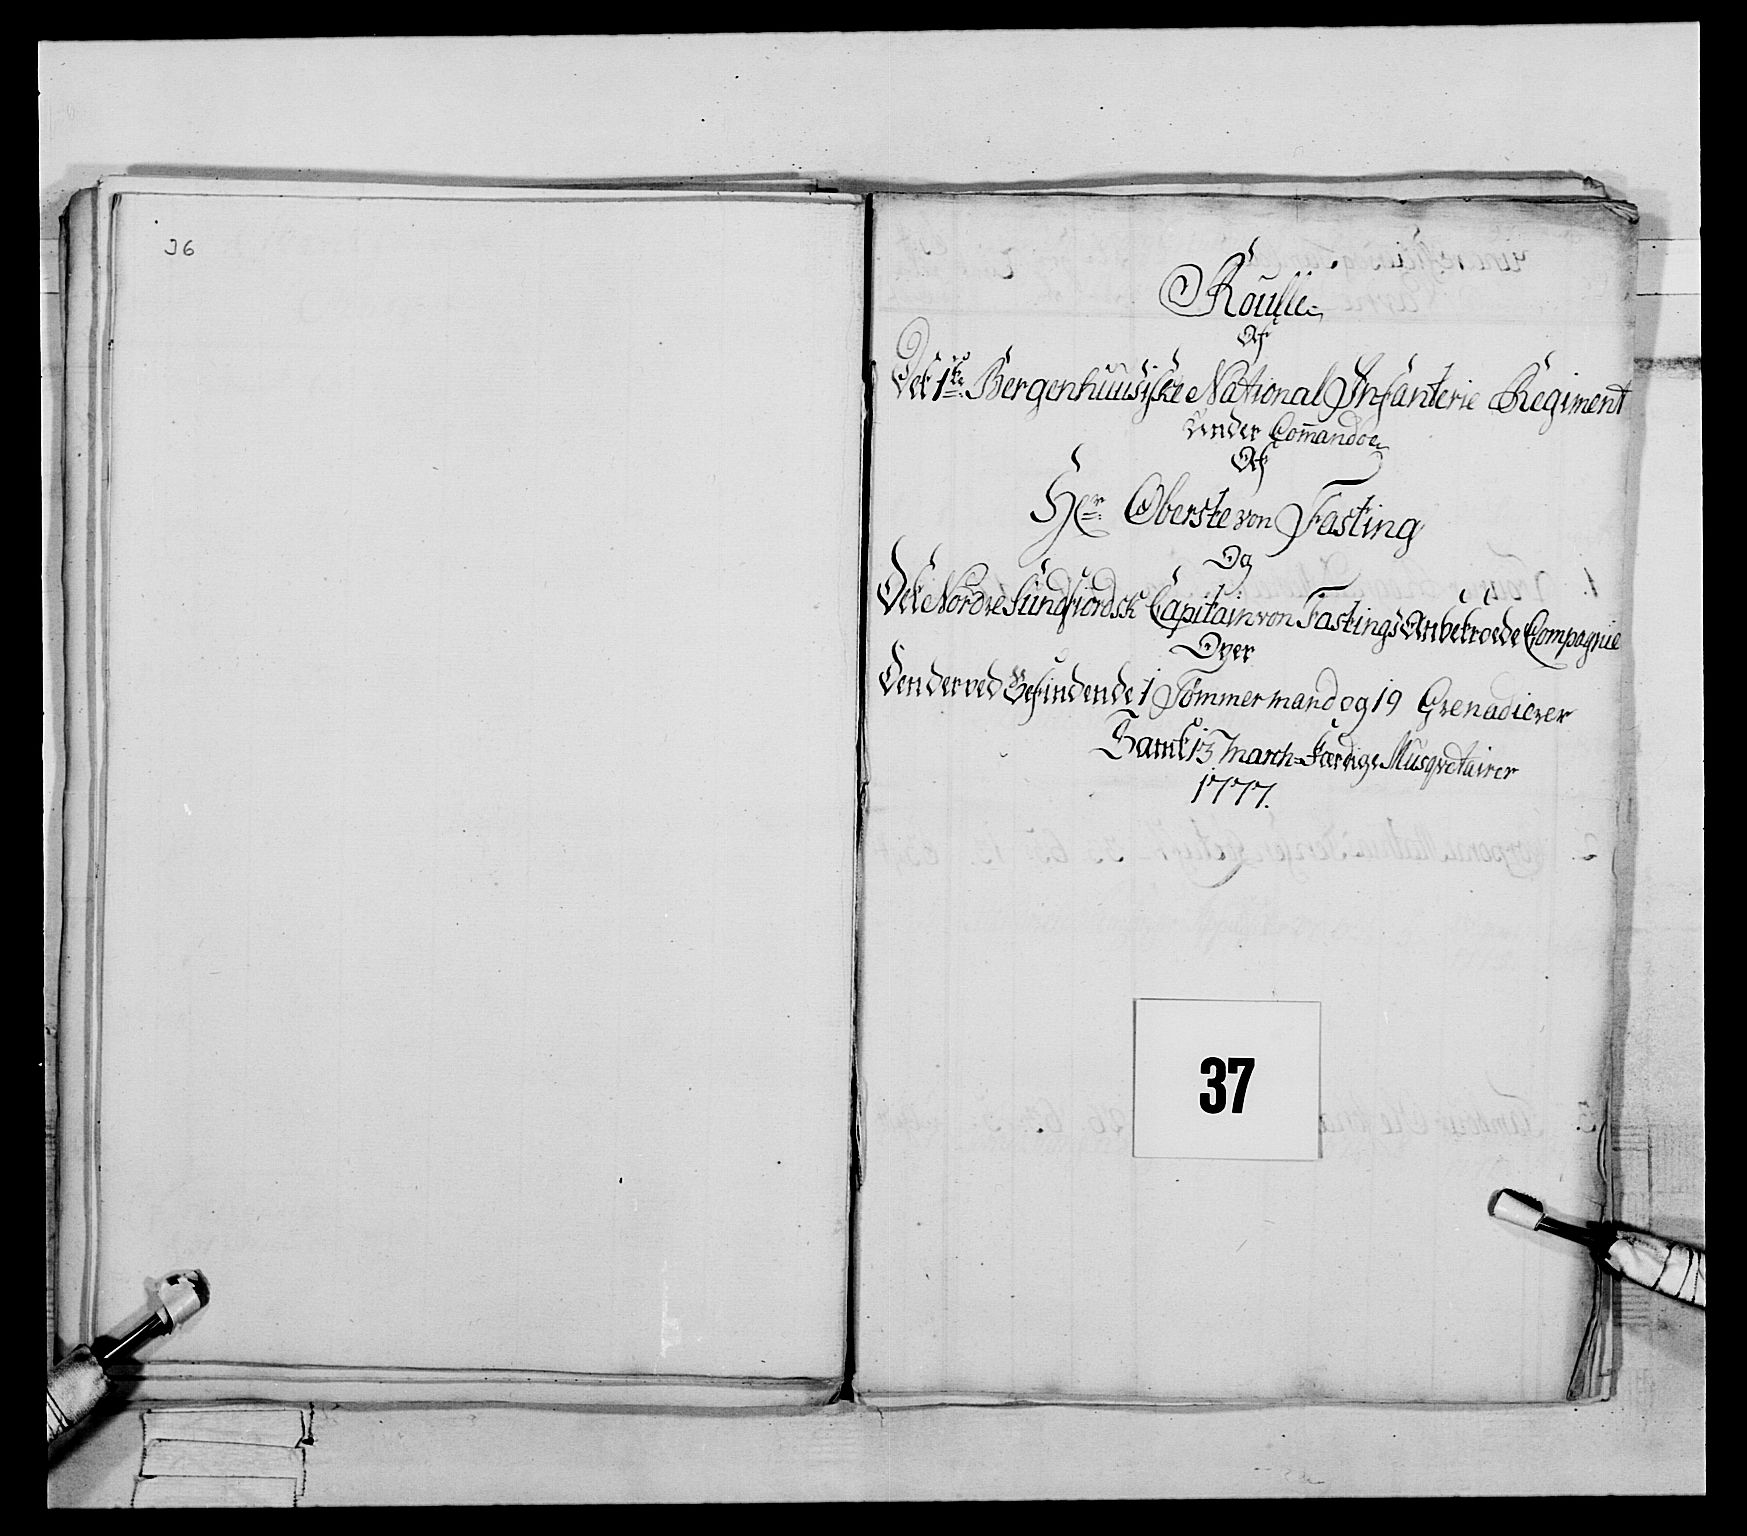 36
Roulle
Af
Det 1te Bergenhuusiske National Infanterie Regiment
Under Commandoe
Af
Her Oberste von Fasting
Og
Det Nordre Sundfiordsk Capitain von Fastings Anbetroede Compagnie
Over
Den derved Befindende 1 Tømmermand og 19 Grenadierer
Samt 13 March-færdige Musqvetairer
1777.
37